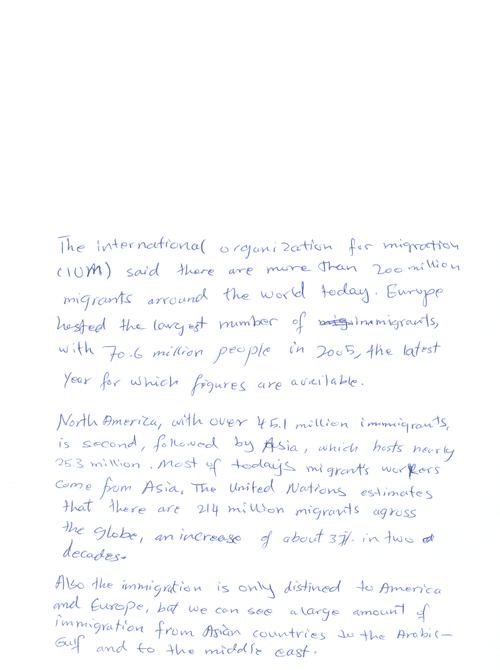 The international organization for migration
(IOM) said there are more than 200 million
migrants arround the world today. Europe
hosted the largest number of immigrants,
with 70.6 million people in 2005, the latest
year for which figures are available.
North America, with over 45.1 million immigrants,
is second, followed by Asia, which hosts nearly
25.3 million. Most of today's migrants workers
come from Asia. The United Nations estimates
that there are 214 million migrants agross
the globe, an increase of about 37% in two
decades.
Also the immigration is only distined to America
and Europe, but we can see a large amount of
immigration from Asian countries to the Arabic-
Gulf and to the middle east.